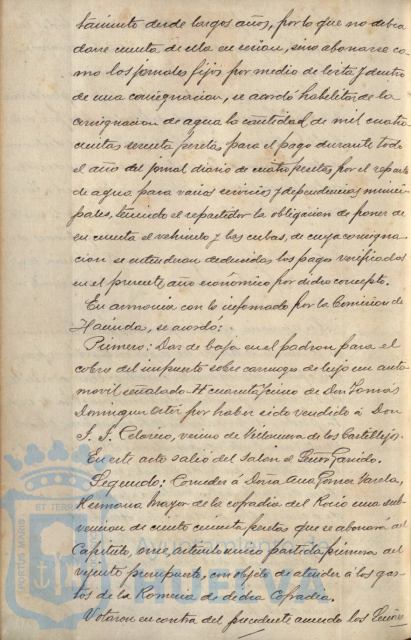 tamiento desde largos años, por lo que no debia
darse cuenta de ella en sesion, sino abonarse co-
mo los jornales fijos por medio de lista y dentro
de una consignacion, se acordó habilitar de la
consignacion de agua la cantidad de mil cuatro
cientas sesenta pesetas para el pago durante todo
el año del jornal diario de cuatro pesetas por el reparto
de agua para varios servicios y dependencias munici-
pales, teniendo el repartidor la obligacion de poner de
su cuenta el vehiculo y las cubas, de cuya consigna-
cion se entenderan deducidos los pagos verificados
en el presente año económico por dicho concepto.
En armonia con lo informado por la Comision de
Hacienda, se acordó:
Primero: Dar de baja en el padron para el
cobro del impuesto sobre carruages de lujo un auto-
movil señalado H cuarenta y cinco de Don Tomás
Dominguez Ortiz por haber sido vendido á Don
J. J. Celorico, vecino de Villanueva de los Castillejos.
En este acto salió del Salon el Señor Garrido.
Segundo: Conceder á Doña Ana Gomez Varela,
Hermana Mayor de la cofradia del Rocio una sub-
vencion de ciento cincuenta pesetas que se abonará del
Capitulo, once, articulo unico partida primera del
vigente presupuesto, con objeto de atender á los gas-
tos de la Romeria de dicha Cofradia.
Votaron en contra del precedente acuerdo los Señores
PORTUS MARIS ET TERRAE
Ayuntamiento de
HUELVA